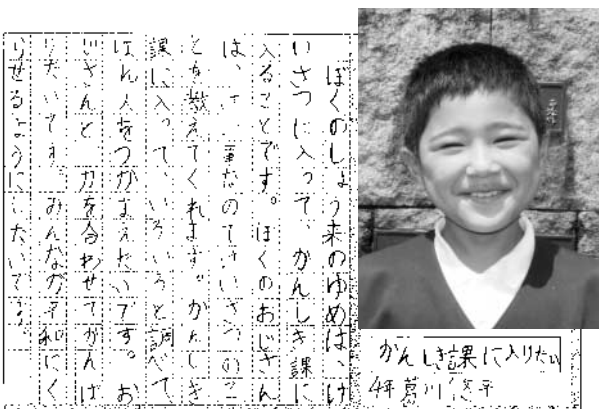 ぼくのしょう来のゆめは、け
いさつに入って、かんしき課に
入ることです。ぼくのおじさん
は、けい事なのでけいさつのこ
とを教えてくれます。かんしき
課に入って、いろいろと調べて、
はん人をつかまえたいです。お
じさんと力を合わせてがんば
りたいです。みんなが平和にく
らせるようにしたいです。
かんしき課に入りたい
4年 川 平